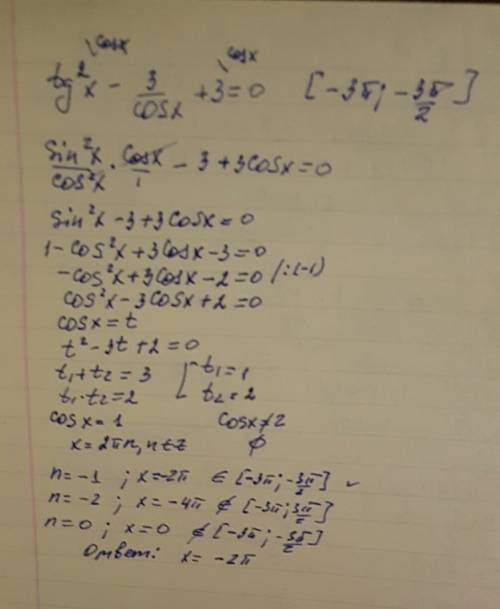 \cosx \cosx
tg²x - 3/cosx + 3 = 0 [-3π; -3π/2]
sin²x/cos²x · cosx/1 - 3 + 3cosx = 0
sin²x - 3 + 3cosx = 0
1 - cos²x + 3cosx - 3 = 0
-cos²x + 3cosx - 2 = 0 /:(-1)
cos²x - 3cosx + 2 = 0
cosx = t
t² - 3t + 2 = 0
t₁ + t₂ = 3 [ t₁ = 1
t₁·t₂ = 2 t₂ = 2
cosx = 1 cosx ≠ 2
x = 2πn, n∈z ∅
n = -1 ; x = -2π ∈ [-3π; -3π/2] ✓
n = -2 ; x = -4π ∉ [-3π; 3π/2]
n = 0 ; x = 0 ∉ [-3π; -3π/2]
Ответ: x = -2π